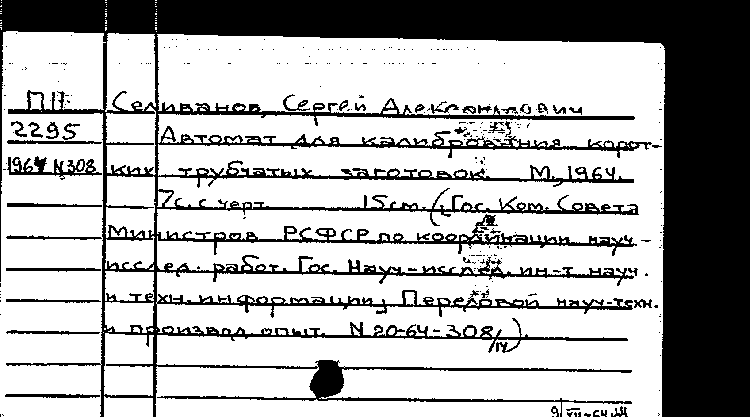 ПП Селиванов, Сергей Александрович
2295 Автомат для калибрования корот-
1964 N308 ких трубчатых заготовок. М., 1964.
7с. с черт. 15см. (Гос. Ком. Совета
Министров РСФСР по координации науч-
исслед. работ. Гос. Науч-исслед. ин-т науч.
и техн. информации; Передовой науч-техн.
и производ. опыт. N 20-64-308/14).